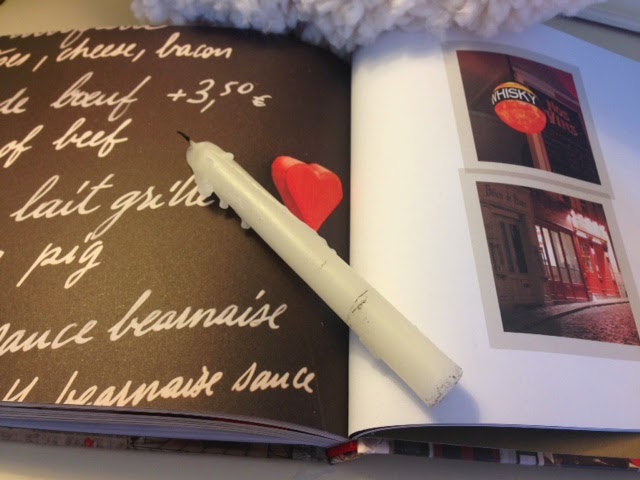 cheese, bacon
de bœuf +3,50 €
of beef
lait grillé
pig
sauce bearnaise
bearnaise sauce
WHISKY
Nos
VINS